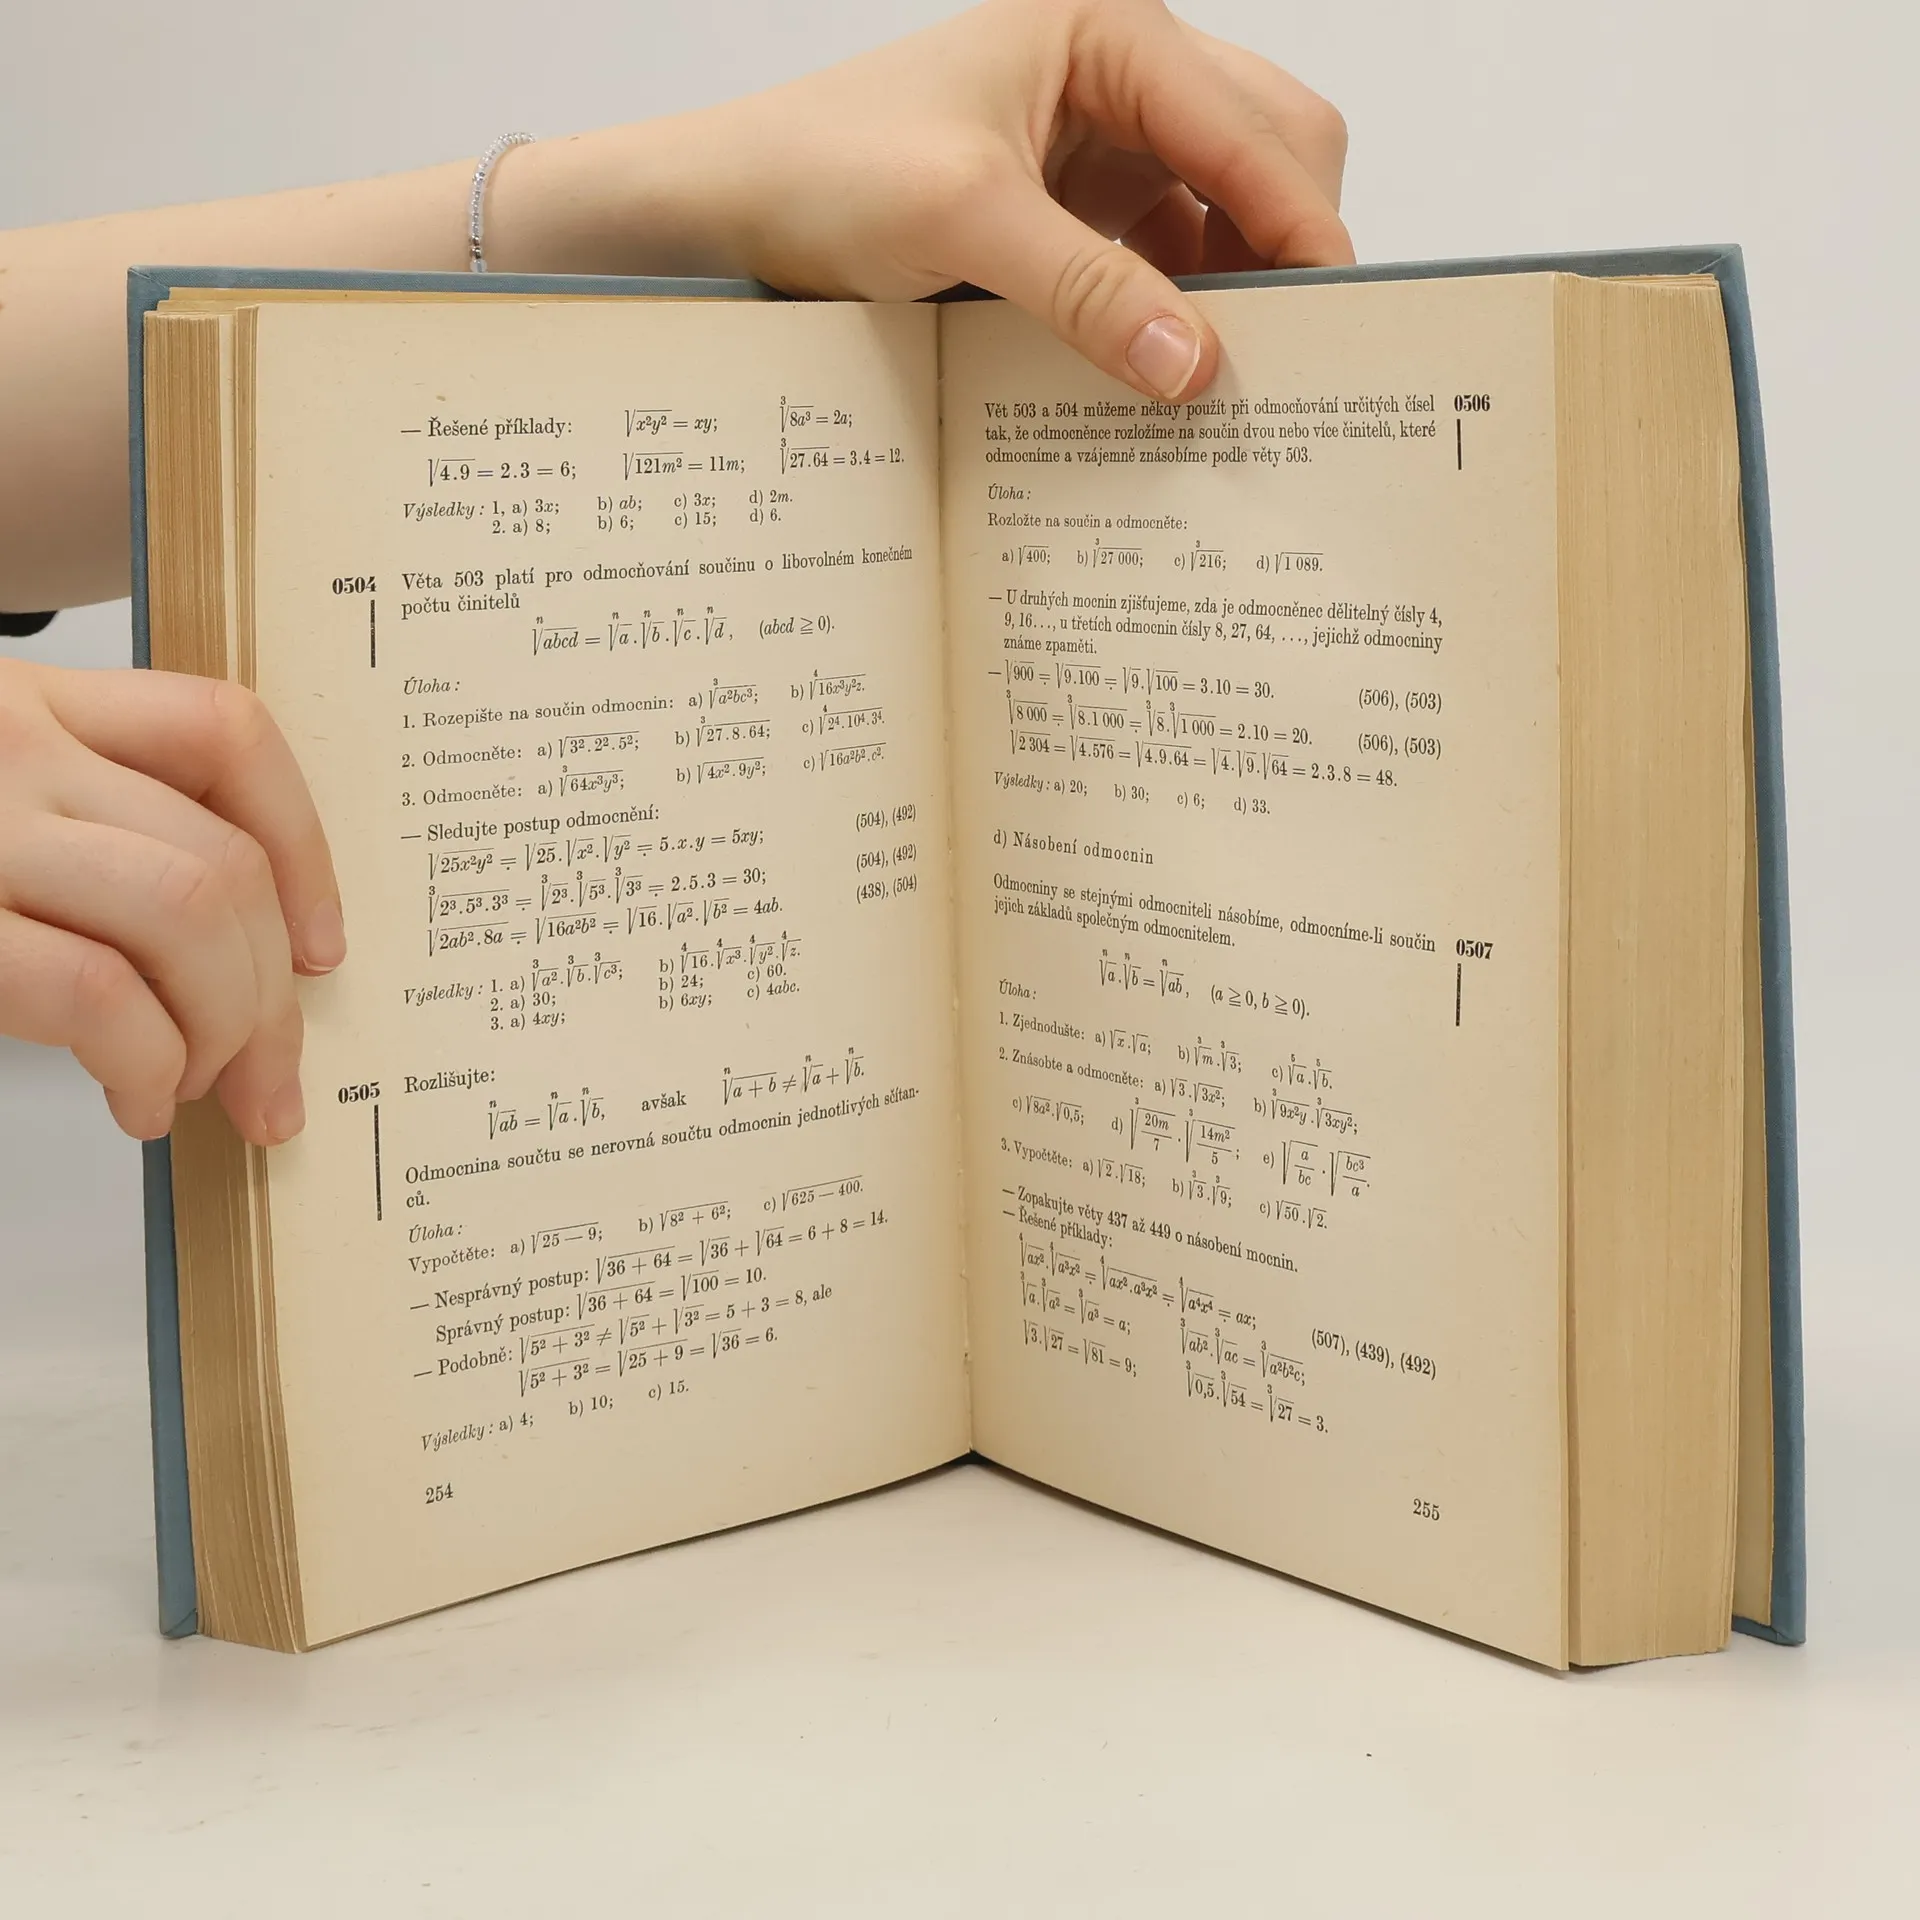 — Řešené příklady: √x²y² = xy; ³√8a³ = 2a;
√4.9 = 2.3 = 6; √121m² = 11m; ³√27.64 = 3.4 = 12.
Výsledky: 1, a) 3x; b) ab; c) 3x; d) 2m.
2. a) 8; b) 6; c) 15; d) 6.
0504 Věta 503 platí pro odmocňování součinu o libovolném konečném
počtu činitelů
ⁿ√abcd = ⁿ√a . ⁿ√b . ⁿ√c . ⁿ√d, (abcd ≧ 0).
Úloha:
1. Rozepište na součin odmocnin: a) ³√a²bc³; b) ⁴√16x³y²z.
2. Odmocněte: a) √3².2².5²; b) ³√27.8.64; c) ⁴√2⁴.10⁴.3⁴.
3. Odmocněte: a) ³√64x³y³; b) √4x².9y²; c) √16a²b².c².
— Sledujte postup odmocnění:
√25x²y² = √25.√x².√y² = 5.x.y = 5xy; (504), (492)
³√2³.5³.3³ = ³√2³.³√5³.³√3³ = 2.5.3 = 30; (504), (492)
√2ab².8a = √16a²b² = √16.√a².√b² = 4ab. (438), (504)
Výsledky: 1. a) ³√a².³√b.³√c³; b) ⁴√16.⁴√x³.⁴√y².⁴√z.
2. a) 30; b) 24; c) 60.
3. a) 4xy; b) 6xy; c) 4abc.
0505 Rozlišujte:
ⁿ√ab = ⁿ√a . ⁿ√b, avšak ⁿ√a + b ≠ ⁿ√a + ⁿ√b.
Odmocnina součtu se nerovná součtu odmocnin jednotlivých sčítan-
ců.
Úloha:
Vypočtěte: a) √25 — 9; b) √8² + 6²; c) √625 — 400.
— Nesprávný postup: √36 + 64 = √36 + √64 = 6 + 8 = 14.
Správný postup: √36 + 64 = √100 = 10.
— Podobně: √5² + 3² ≠ √5² + √3² = 5 + 3 = 8, ale
√5² + 3² = √25 + 9 = √36 = 6.
Výsledky: a) 4; b) 10; c) 15.
254
Vět 503 a 504 můžeme někdy použít při odmocňování určitých čísel 0506
tak, že odmocněnce rozložíme na součin dvou nebo více činitelů, které
odmocníme a vzájemně znásobíme podle věty 503.
Úloha:
Rozložte na součin a odmocněte:
a) √400; b) ³√27 000; c) ³√216; d) √1 089.
— U druhých mocnin zjišťujeme, zda je odmocněnec dělitelný čísly 4,
9, 16..., u třetích odmocnin čísly 8, 27, 64, ..., jejichž odmocniny
známe zpaměti.
— √900 = √9.100 = √9.√100 = 3.10 = 30. (506), (503)
³√8 000 = ³√8.1 000 = ³√8.³√1 000 = 2.10 = 20. (506), (503)
√2 304 = √4.576 = √4.9.64 = √4.√9.√64 = 2.3.8 = 48.
Výsledky: a) 20; b) 30; c) 6; d) 33.
d) Násobení odmocnin
Odmocniny se stejnými odmocniteli násobíme, odmocníme-li součin 0507
jejich základů společným odmocnitelem.
ⁿ√a.ⁿ√b = ⁿ√ab, (a ≧ 0, b ≧ 0).
Úloha:
1. Zjednodušte: a) √x.√a; b) ³√m.³√3; c) ⁵√a.⁵√b.
2. Znásobte a odmocněte: a) √3.√3x²; b) ³√9x²y.³√3xy²;
c) √8a².√0,5; d) ³√20m/7 . ³√14m²/5; e) √a/bc . √bc³/a.
3. Vypočtěte: a) √2.√18; b) ³√3.³√9; c) √50.√2.
— Zopakujte věty 437 až 449 o násobení mocnin.
— Řešené příklady:
⁴√ax².⁴√a³x² = ⁴√ax².a³x² = ⁴√a⁴x⁴ = ax; (507), (439), (492)
³√a.³√a² = ³√a³ = a; ³√ab².³√ac = ³√a²b²c;
√3.√27 = √81 = 9; ³√0,5.³√54 = ³√27 = 3.
255